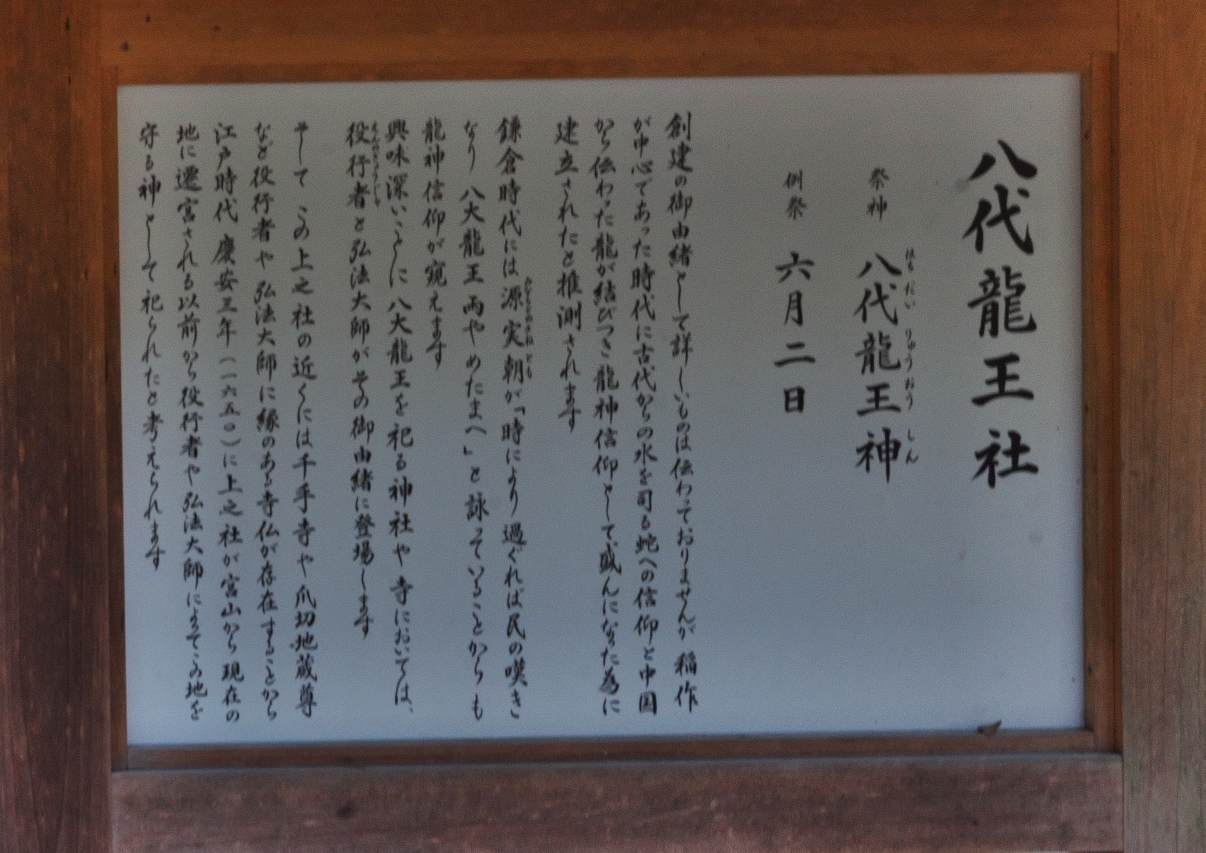 八代龍王社
祭神 八代龍王神
はちだいりゅうおうしん
例祭 六月二日
創建の御由緒として詳しいものは伝わっておりませんが 稲作
が中心であった時代に古代からの水を司る蛇への信仰と中国
から伝わった龍が結びつき龍神信仰として、盛んになった為に
建立されたと推測されます
鎌倉時代には 源実朝が「時により過ぐれば民の嘆き
みなもとのさねとも
なり 八大龍王 雨やめたまへ」と詠っていることからも
龍神信仰が窺えます
興味深いことに 八大龍王を祀る神社や寺においては、
役行者と弘法大師がその御由緒に登場します
えんのぎょうじゃ
そして この上之社の近くには千手寺や爪切地蔵尊
など役行者や弘法大師に縁のある寺仏が存在することから
江戸時代 慶安三年(一六五〇)に上之社が宮山から現在の
地に遷宮される以前から役行者や弘法大師によってこの地を
守る神として祀られたと考えられます